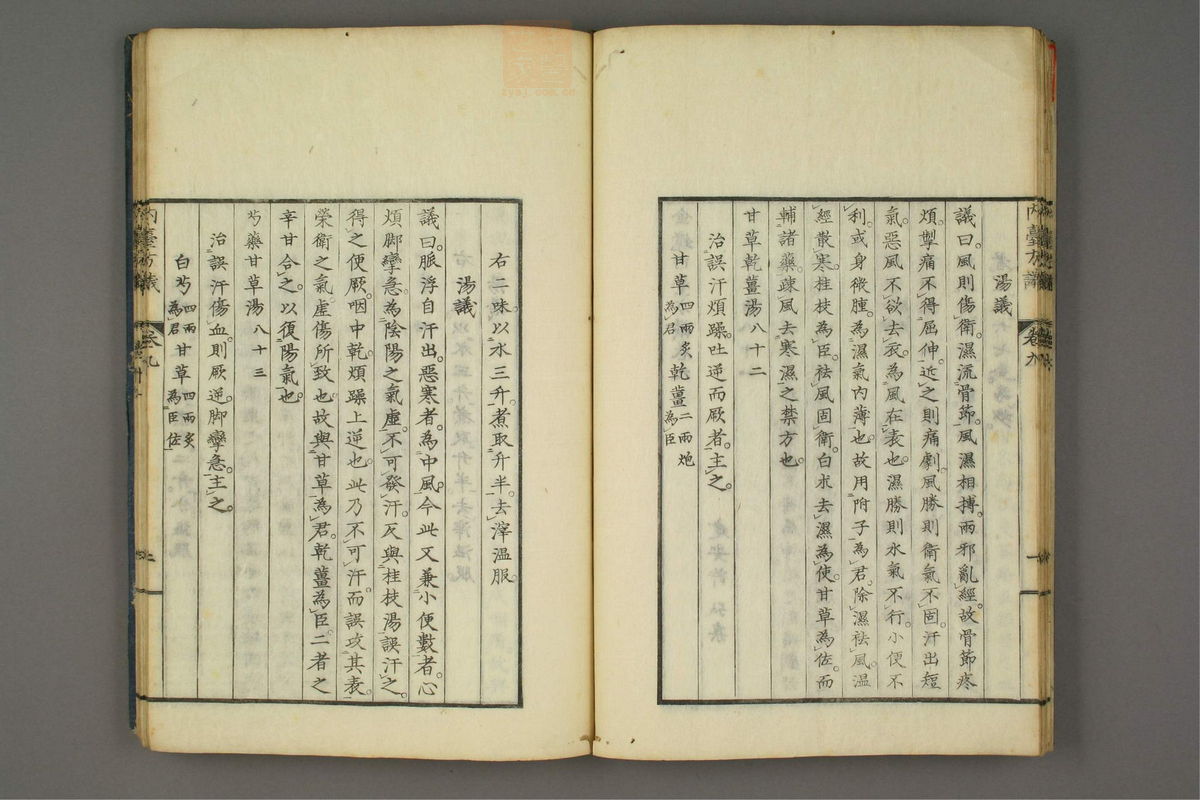 湯議
議曰風則傷衛。濕流骨節。風濕相搏。兩邪亂經。故骨節疼
煩。掣痛不得屈伸。近之則痛劇。風勝則衛氣不固。汗出短
氣。惡風不欲去衣。為風在表也。濕勝則水氣不行。小便不
利。或身微腫。為濕氣內薄也。故用附子為君。除濕祛風。溫
經散寒。桂枝為臣。祛風固衛。白朮去濕為使。甘草為佐。而
輔諸藥。疎風去寒濕之禁方也。
甘草乾薑湯八十二
治誤汗煩躁。吐逆而厥者。主之。
甘草四兩炙為君 乾薑二兩炮為臣
內臺方議 卷九
右二味。以水三升。煮取升半。去滓溫服。
湯議
議曰。脈浮自汗出。惡寒者。為中風。今此又兼小便數者。心
煩脚攣急。為陰陽之氣虛。不可發汗。反與桂枝湯誤汗之。
得之便厥。咽中乾。煩躁上逆也。此乃不可汗。而誤攻其表。
榮衛之氣虛傷所致也。故與甘草為君。乾薑為臣。二者之
辛甘合之。以復陽氣也。
芍藥甘草湯八十三
治誤汗傷血。則厥逆。脚攣急。主之。
白芍四兩為君 甘草四兩炙為臣佐
內臺方議 卷九